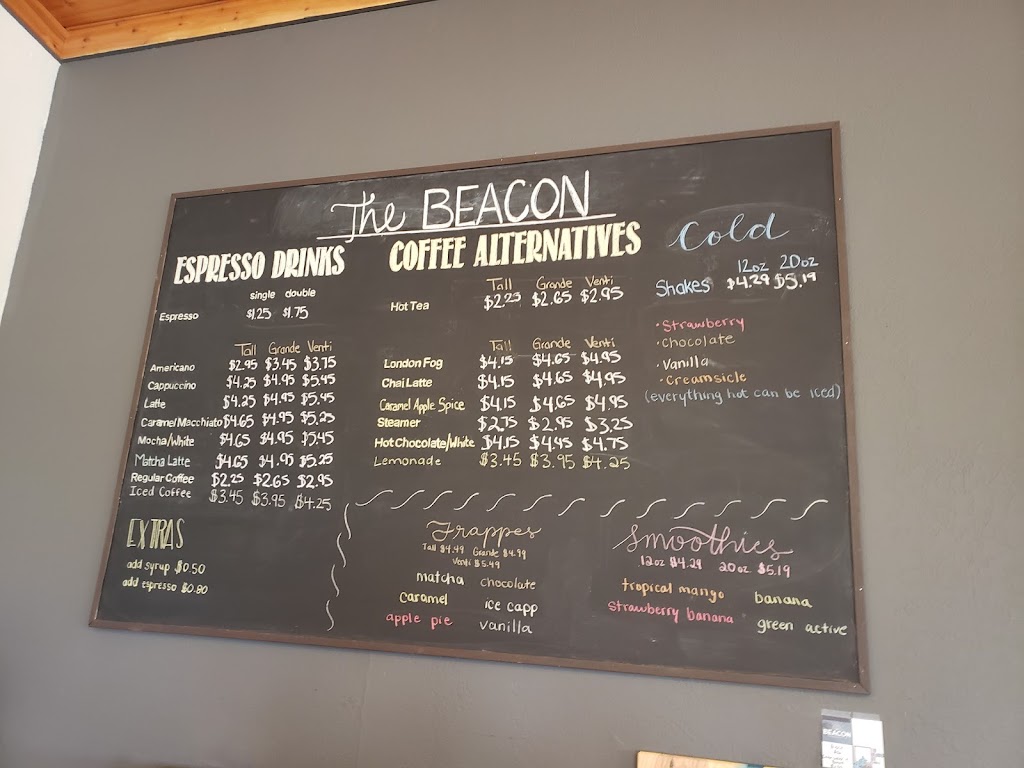 The BEACON
ESPRESSO DRINKS
single double
Espresso $1.25 $1.75
Tall Grande Venti
Americano $2.95 $3.45 $3.75
Cappuccino $4.25 $4.95 $5.45
Latte $4.25 $4.95 $5.45
Caramel Macchiato $4.65 $4.95 $5.25
Mocha/White $4.65 $4.95 $5.45
Matcha Latte $4.65 $4.95 $5.25
Regular Coffee $2.25 $2.65 $2.95
Iced Coffee $3.45 $3.95 $4.25
EXTRAS
add syrup $0.50
add espresso $0.80
COFFEE ALTERNATIVES
Tall Grande Venti
Hot Tea $2.25 $2.65 $2.95
Tall Grande Venti
London Fog $4.15 $4.65 $4.95
Chai Latte $4.15 $4.65 $4.95
Caramel Apple Spice $4.15 $4.65 $4.95
Steamer $2.75 $2.95 $3.25
Hot Chocolate/White $4.15 $4.45 $4.75
Lemonade $3.45 $3.95 $4.25
Cold
12oz 20oz
Shakes $4.29 $5.19
• Strawberry
• Chocolate
• Vanilla
• Creamsicle
(everything hot can be iced)
Frappes
Tall $4.49 Grande $4.99
Venti $5.49
matcha chocolate
caramel ice capp
apple pie vanilla
Smoothies
12oz $4.29 20oz $5.19
tropical mango banana
Strawberry banana green active
BEACON